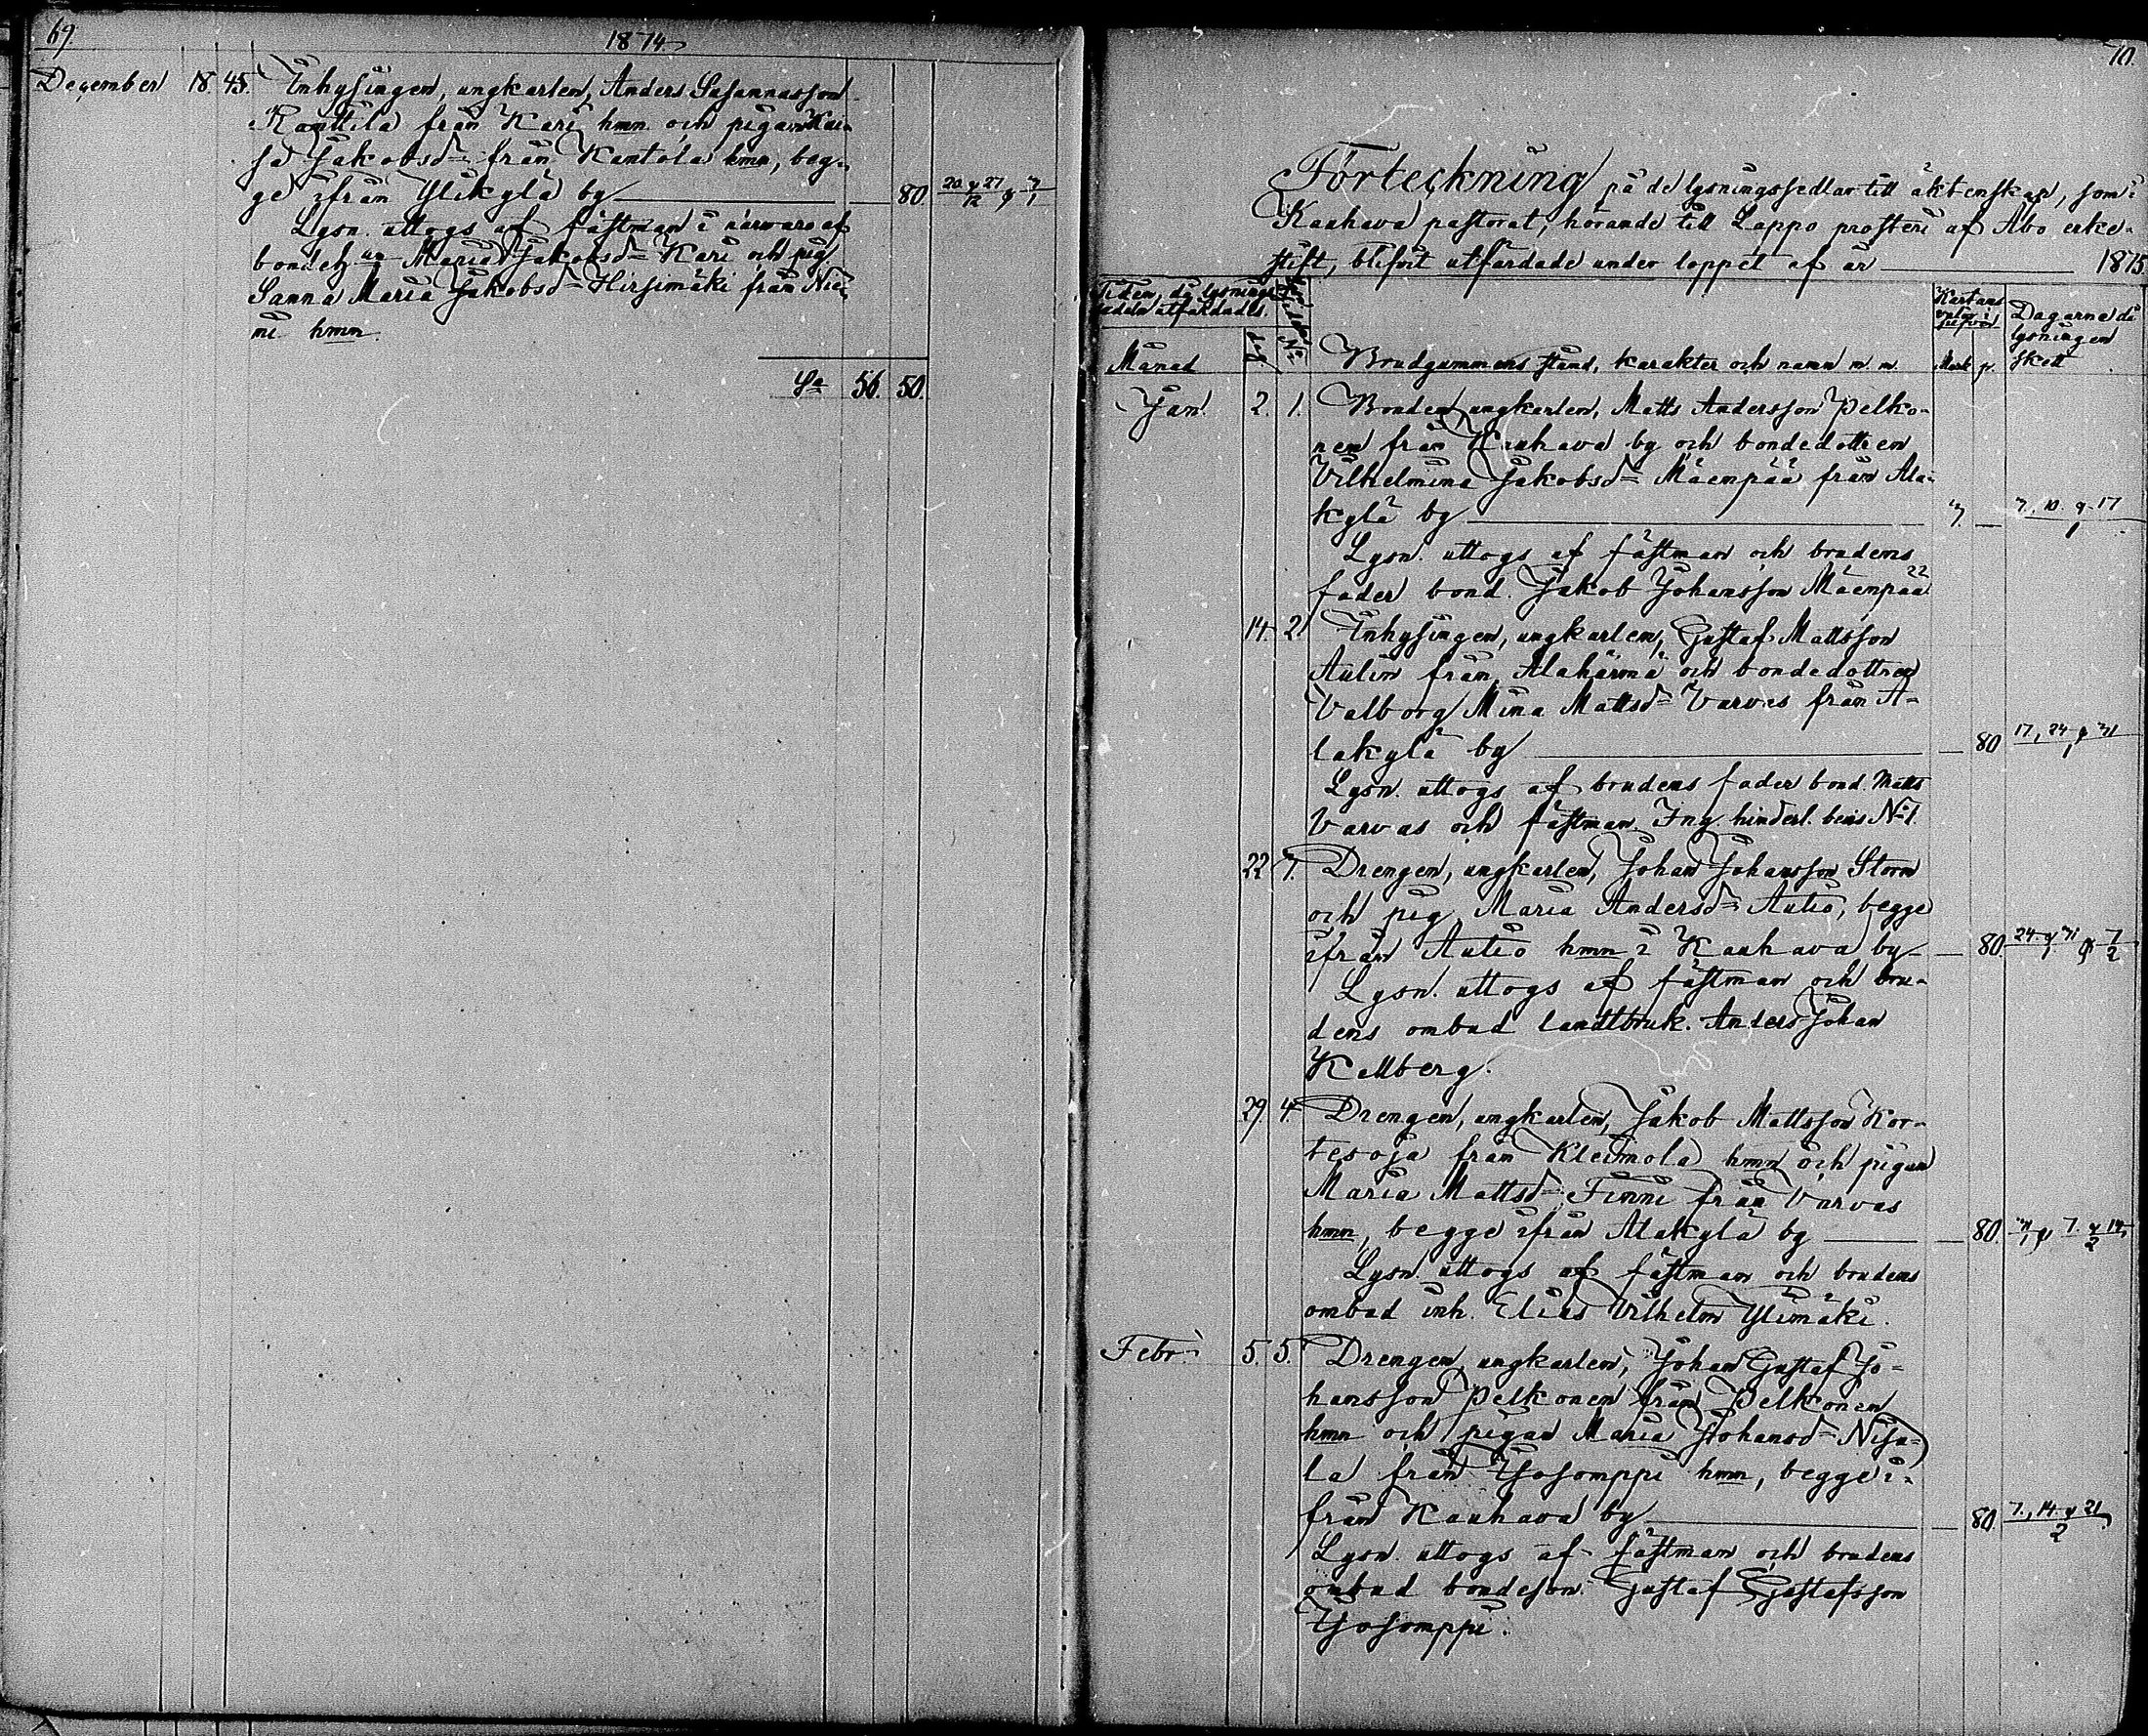 69.
1874
December 18. 45. Inhysingen, ungkarlen, Anders Susannasson
Ranttila från Kari hmn. och pigan Kai-
sa Jakobsd= från Kantola hmn, beg-
ge ifrån Ylikylä by — 80. 20 & 27/12 & 3/1
Lysn. uttogs af fästman i närvaro af
bondeh:un Maria Jakobsd= Kari och pig.
Sanna Maria Jakobsd= Hirsimäki från Nie-
mi hmn.
Sa 56. 50.
70.
Förteckning på de lysningssedlar till äktenskap, som i
Kauhava pastorat, hörande till Lappo prosteri af Åbo erke-
stift, blifvit utfärdade under loppet af år 1875
Tiden, då lysnings-
sedeln utfärdades.
Månad
Brudgummens stånd, karakter och namn m. m.
Mark p.
Dagarne då
lysningen
skett
Jan. 2. 1. Bonden, ungkarlen, Matts Andersson Pelko-
nen från Kauhava by och bondedottren
Vilhelmina Jakobsd= Mäenpää från Ala-
kylä by — 3. — 3, 10 & 17/1
Lysn. uttogs af fästman och brudens
fader bond. Jakob Johansson Mäenpää
14. 2. Inhysingen, ungkarlen, Gustaf Mattsson
Aulin från Alahärmä och bondedottren
Valborg Mina Mattsd= Varvas från A-
lakylä by — 80 17, 24 & 31/1
Lysn. uttogs af brudens fader bond. Matts
Varvas och fästman. Ing. hinderl. bevis No 1.
22 3. Drengen, ungkarlen, Johan Johansson Storm
och pig. Maria Andersd= Autio, begge
ifrån Autio hmn i Kauhava by — 80. 24 & 31/1 & 7/2
Lysn. uttogs af fästman och bru-
dens ombud landtbruk. Anders Johan
Kellberg.
29. 4. Drengen, ungkarlen, Jakob Mattsson Kor-
tesoja från Kleimola hmn och pigan
Maria Mattsd= Finni från Varvas
hmn, begge ifrån Alakylä by — 80. 31/1 & 7. & 14/2
Lysn. uttogs af fästman och brudens
ombud inh. Elias Vilhelm Ylimäki.
Febr. 5. 5. Drengen, ungkarlen, Johan Gustaf Jo-
hansson Pelkonen från Pelkonen
hmn och pigan Maria Johansd= Nisu-
la från Isosomppi hmn, begge i-
från Kauhava by — 80. 7., 14 & 21/2
Lysn. uttogs af fästman och brudens
ombud bondeson. Gustaf Gustafsson
Isosomppi.